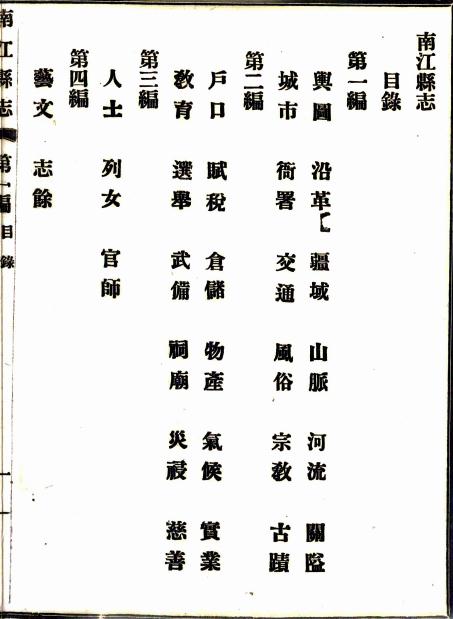 南江縣志
目錄
第一編
輿圖 沿革 疆域 山脈 河流 關隘
城市 衙署 交通 風俗 宗敎 古蹟
第二編
戶口 賦稅 倉儲 物產 氣候 實業
敎育 選舉 武備 祠廟 災祲 慈善
第三編
人士 列女 官師
第四編
藝文 志餘
南江縣志 第一編 目錄 一